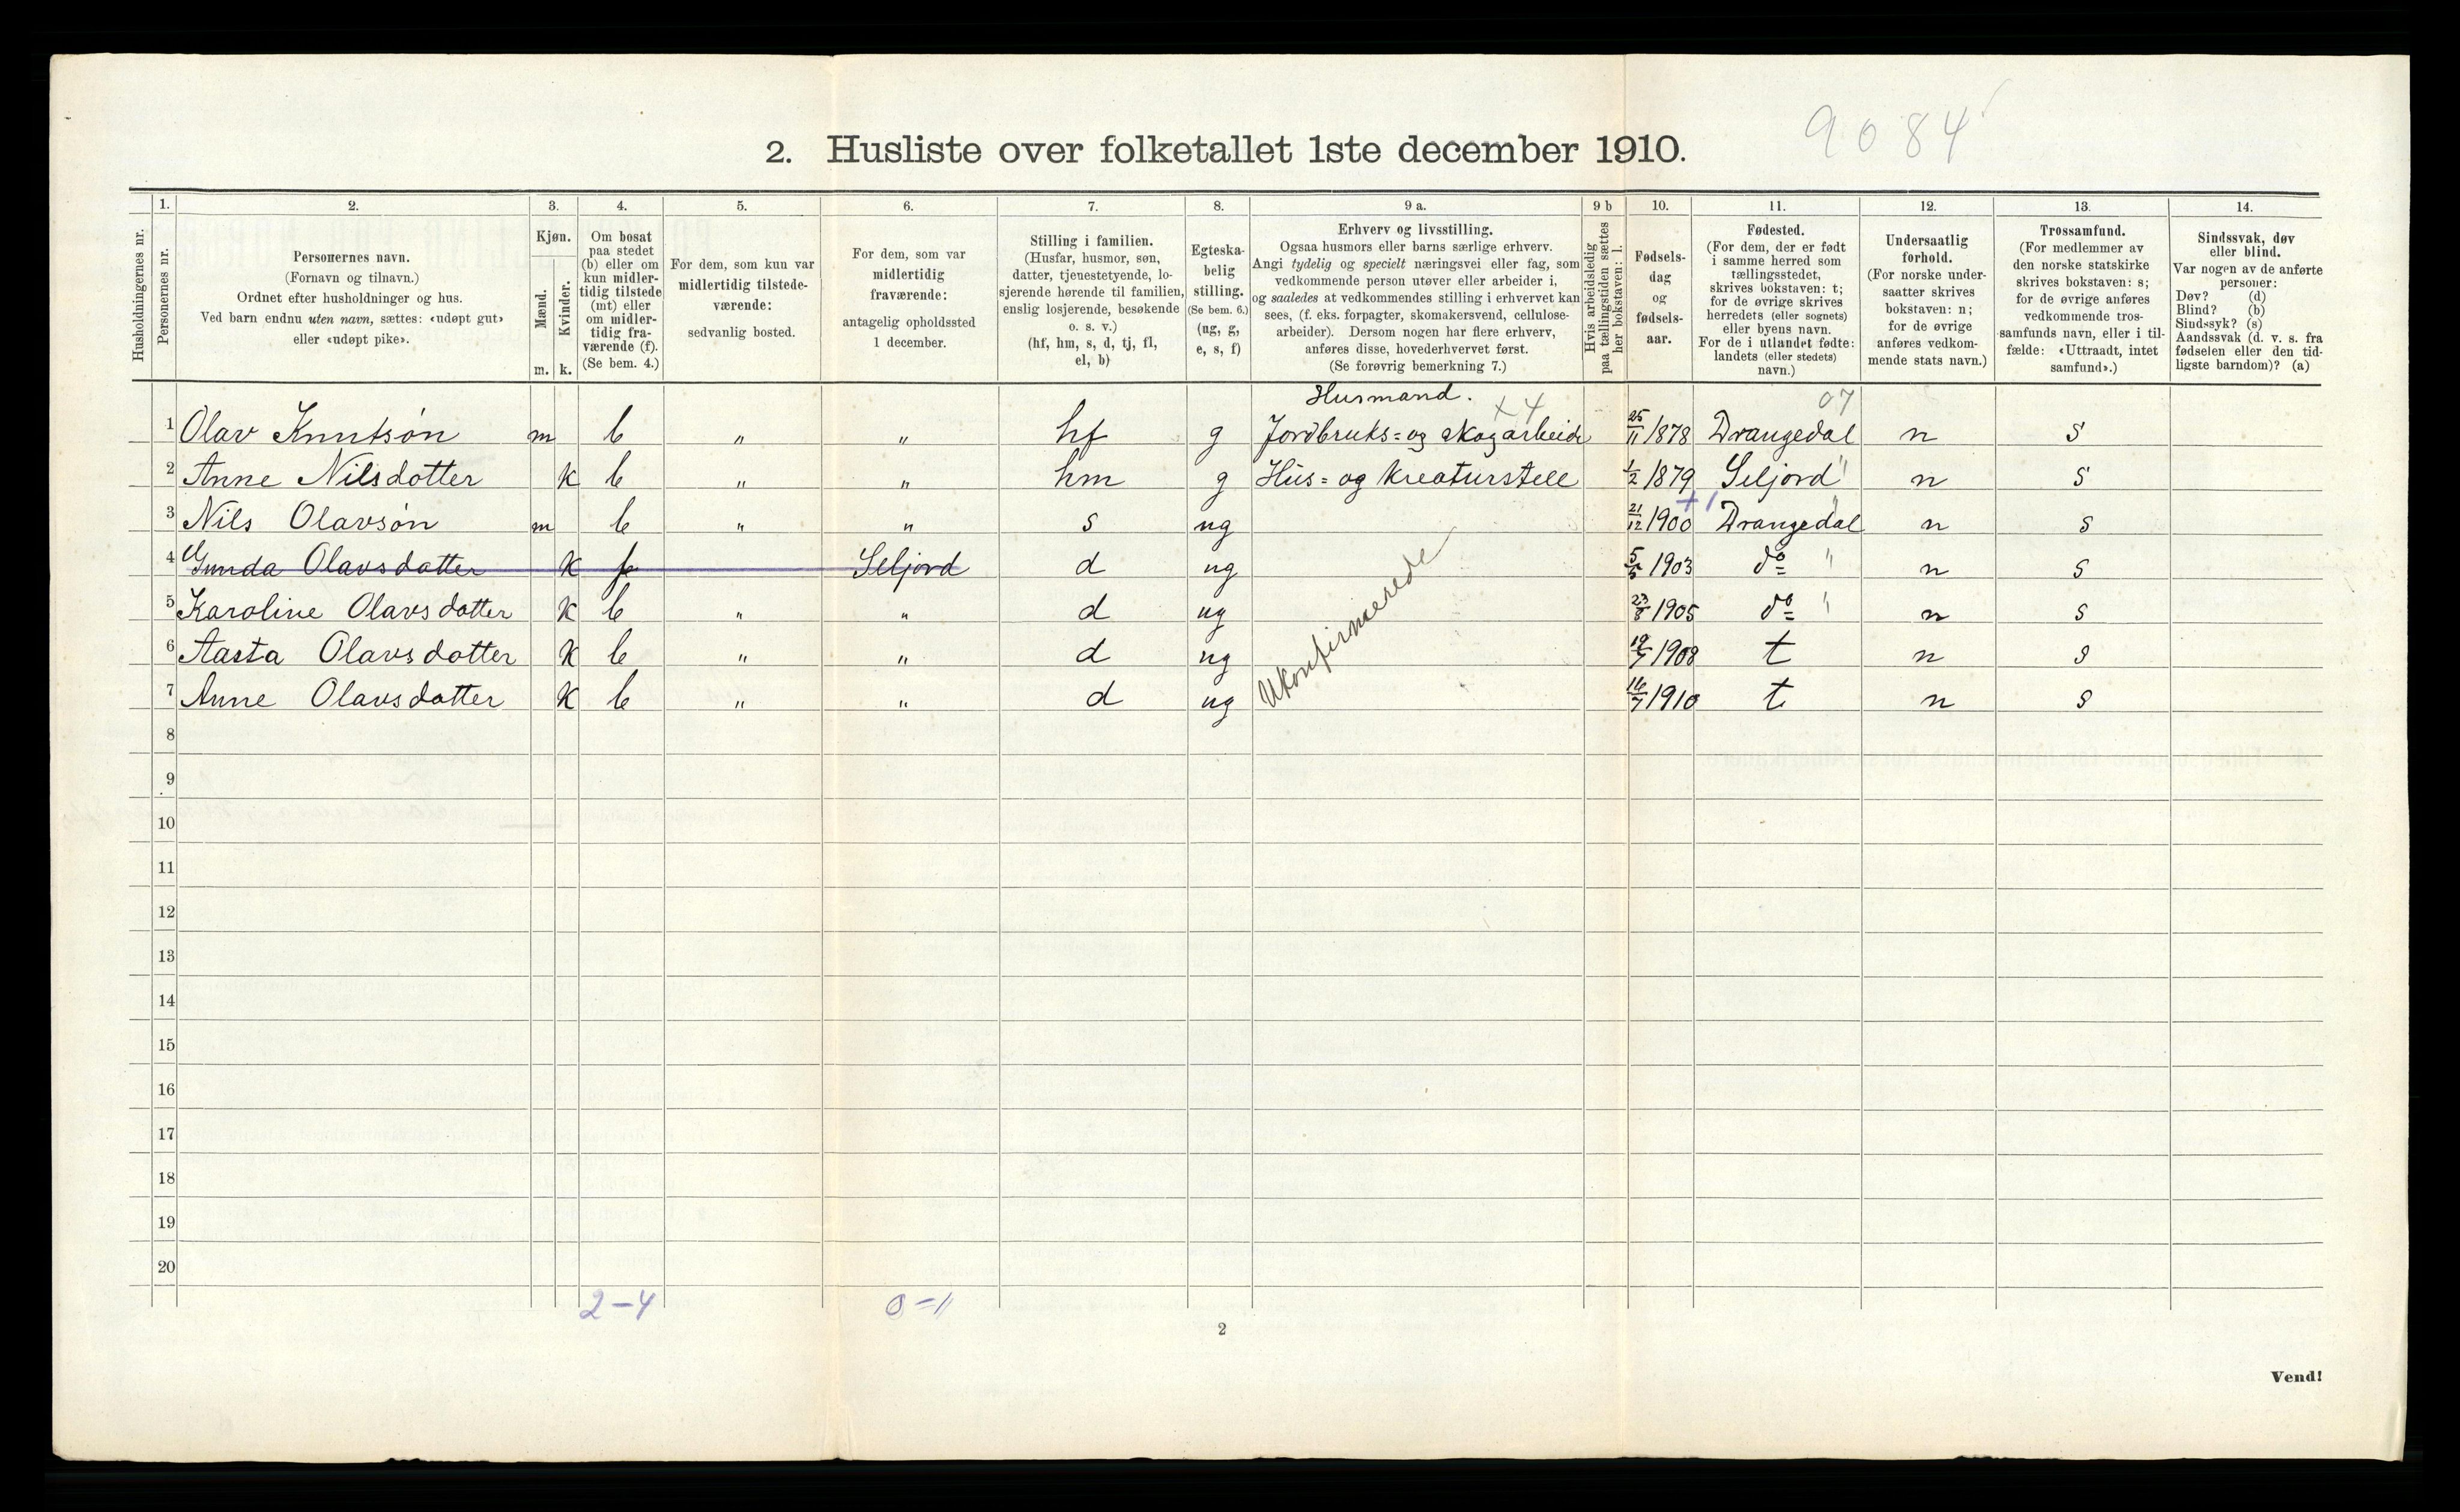 9084
2. Husliste over folketallet 1ste december 1910.
Husholdningernes nr.
1. Personernes nr.
2. Personernes navn.
(Fornavn og tilnavn.)
Ordnet efter husholdninger og hus.
Ved barn endnu uten navn, sættes: «udøpt gut»
eller «udøpt pike».
3. Kjøn.
Mænd. Kvinder.
m. k.
4. Om bosat
paa stedet
(b) eller om
kun midler-
tidig tilstede
(mt) eller
om midler-
tidig fra-
værende (f).
(Se bem. 4.)
5. For dem, som kun var
midlertidig tilstede-
værende:
sedvanlig bosted.
6. For dem, som var
midlertidig
fraværende:
antagelig opholdssted
1 december.
7. Stilling i familien.
(Husfar, husmor, søn,
datter, tjenestetyende, lo-
sjerende hørende til familien,
enslig losjerende, besøkende
o. s. v.)
(hf, hm, s, d, tj, fl,
el, b)
8. Egteska-
belig
stilling.
(Se bem. 6.)
(ug, g,
e, s, f)
9 a. Erhverv og livsstilling.
Ogsaa husmors eller barns særlige erhverv.
Angi tydelig og specielt næringsvei eller fag, som
vedkommende person utøver eller arbeider i,
og saaledes at vedkommendes stilling i erhvervet kan
sees, (f. eks. forpagter, skomakersvend, cellulose-
arbeider). Dersom nogen har flere erhverv,
anføres disse, hovederhvervet først.
(Se forøvrig bemerkning 7.)
9 b Hvis arbeidsledig
paa tællingstiden sættes
her bokstaven: l.
10. Fødsels-
dag
og
fødsels-
aar.
11. Fødested.
(For dem, der er født
i samme herred som
tællingsstedet,
skrives bokstaven: t;
for de øvrige skrives
herredets (eller sognets)
eller byens navn.
For de i utlandet fødte:
landets (eller stedets)
navn.)
12. Undersaatlig
forhold.
(For norske under-
saatter skrives
bokstaven: n;
for de øvrige
anføres vedkom-
mende stats navn.)
13. Trossamfund.
(For medlemmer av
den norske statskirke
skrives bokstaven: s;
for de øvrige anføres
vedkommende tros-
samfunds navn, eller i til-
fælde: «Uttraadt, intet
samfund».)
14. Sindssvak, døv
eller blind.
Var nogen av de anførte
personer:
Døv? (d)
Blind? (b)
Sindssyk? (s)
Aandssvak (d. v. s. fra
fødselen eller den tid-
ligste barndom)? (a)
Husmand. x4 07
1 Olav Knutsøn m b " " hf g Jordbruks= og skogarbeide 25/11 1878 Drangedal n s
2 Anne Nilsdotter k b " " hm g Hus= og kreaturstell 1/2 1879 Seljord " n s
+1
3 Nils Olavsøn m b " " s ug 21/12 1900 Drangedal " n s
4 Gunda Olavsdotter k f Seljord d ug 5/5 1903 do " n s
5 Karoline Olavsdotter k b " " d ug 23/8 1905 do " n s
6 Aasta Olavsdotter k b " " d ug 1908 t n s
7 Anne Olavsdotter k b " " d ug 16/7 1910 t n s
Ukonfirmerede
8
9
10
11
12
13
14
15
16
17
18
19
20
2-4 0-1
2
Vend!